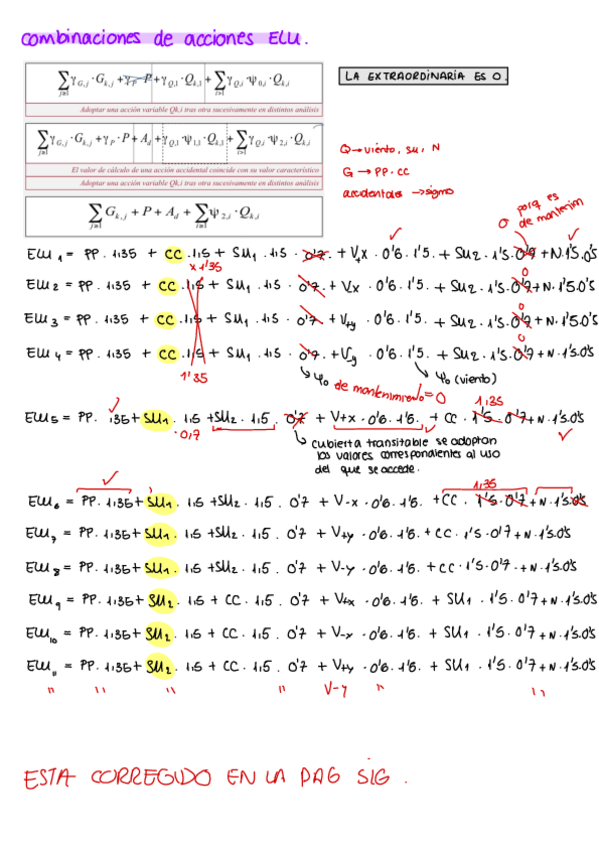 combinaciones de acciones ELU.
∑γG,j · Gk,j + γP · P + γQ,1 · Qk,1 + ∑γQ,i · ψ0,i · Qk,i
LA EXTRAORDINARIA ES 0.
Adoptar una acción variable Qk,i tras otra sucesivamente en distintos análisis
∑γG,j · Gk,j + γP · P + Ad + γQ,1 · ψ1,1 · Qk,1 + ∑γQ,i · ψ2,i · Qk,i
Q → viento, su, N
G → PP. CC
accidentales → sismo
El valor de cálculo de una acción accidental coincide con su valor característico
Adoptar una acción variable Qk,i tras otra sucesivamente en distintos análisis
∑Gk,j + P + Ad + ∑ψ2,i · Qk,i
0 porq es de mantenim
ELU 1 = PP. 1.35 + CC .1,5 + SU1 . 1.5 · 0'7. + V+x · 0'6. 1'5. + SU2. 1'5. 0'7 + N. 1'5. 0'5
x 1'35
0
ELU 2 = PP. 1.35 + CC .1,5 + SU1 . 1.5 · 0'7. + V-x · 0'6. 1'5. + SU2. 1'5. 0'7 + N. 1'5 0'5
0
ELU 3 = PP. 1.35 + CC .1,5 + SU1 . 1.5 · 0'7. + V+y · 0'6. 1'5. + SU2. 1'5. 0'7 + N. 1'5. 0'5
0
ELU 4 = PP. 1.35 + CC .1,5 + SU1 . 1.5 · 0'7. + V-y · 0'6. 1'5. + SU2. 1'5. 0'7 + N. 1'5. 0'5
1'35
ψ0 de mantenimiento = 0
ψ0 (viento)
1,35
ELU 5 = PP. 135 + SU1. 1.5 + SU2. 1.5. 0'7 + V+x · 0'6. 1'5. + CC. 1'5. 0'7 + N. 1'5. 0'5
· 0,7
cubierta transitable se adoptan
los valores correspondientes al uso
del que se accede.
1,35
ELU 6 = PP. 1.35 + SU1. 1.5 + SU2. 1.5. 0'7 + V-x · 0'6. 1'5. + CC. 1'5. 0'7 + N. 1'5. 0'5
ELU 7 = PP. 1.35 + SU1. 1.5 + SU2. 1.5. 0'7 + V+y · 0'6. 1'5. + CC. 1'5. 0'7 + N. 1'5. 0'5
ELU 8 = PP. 1.35 + SU1. 1.5 + SU2. 1.5. 0'7 + V-y · 0'6. 1'5. + CC. 1'5. 0'7 + N. 1'5. 0'5
ELU 9 = PP. 1.35 + SU2. 1.5 + CC. 1.5. 0'7 + V+x · 0'6. 1'5. + SU1. 1'5. 0'7 + N. 1'5. 0'5
ELU 10 = PP. 1.35 + SU2. 1.5 + CC. 1.5. 0'7 + V-x · 0'6. 1'5. + SU1. 1'5. 0'7 + N. 1'5. 0'5
ELU 11 = PP. 1.35 + SU2. 1.5 + CC. 1.5. 0'7 + V+y · 0'6. 1'5. + SU1. 1'5. 0'7 + N. 1'5. 0'5
" " " " V-y " "
ESTA CORREGIDO EN LA PAG SIG.